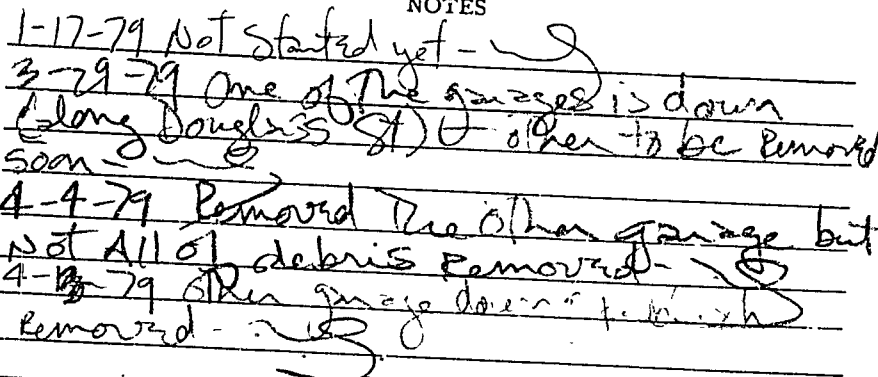 NOTES
1-17-79 Not Started yet -
3-29-79 One of The garages is down
(along Douglass St) & other to be Removed
soon -
4-4-79 Removed The other garage but
Not All of debris Removed -
4- -79 other garage down
Removed -